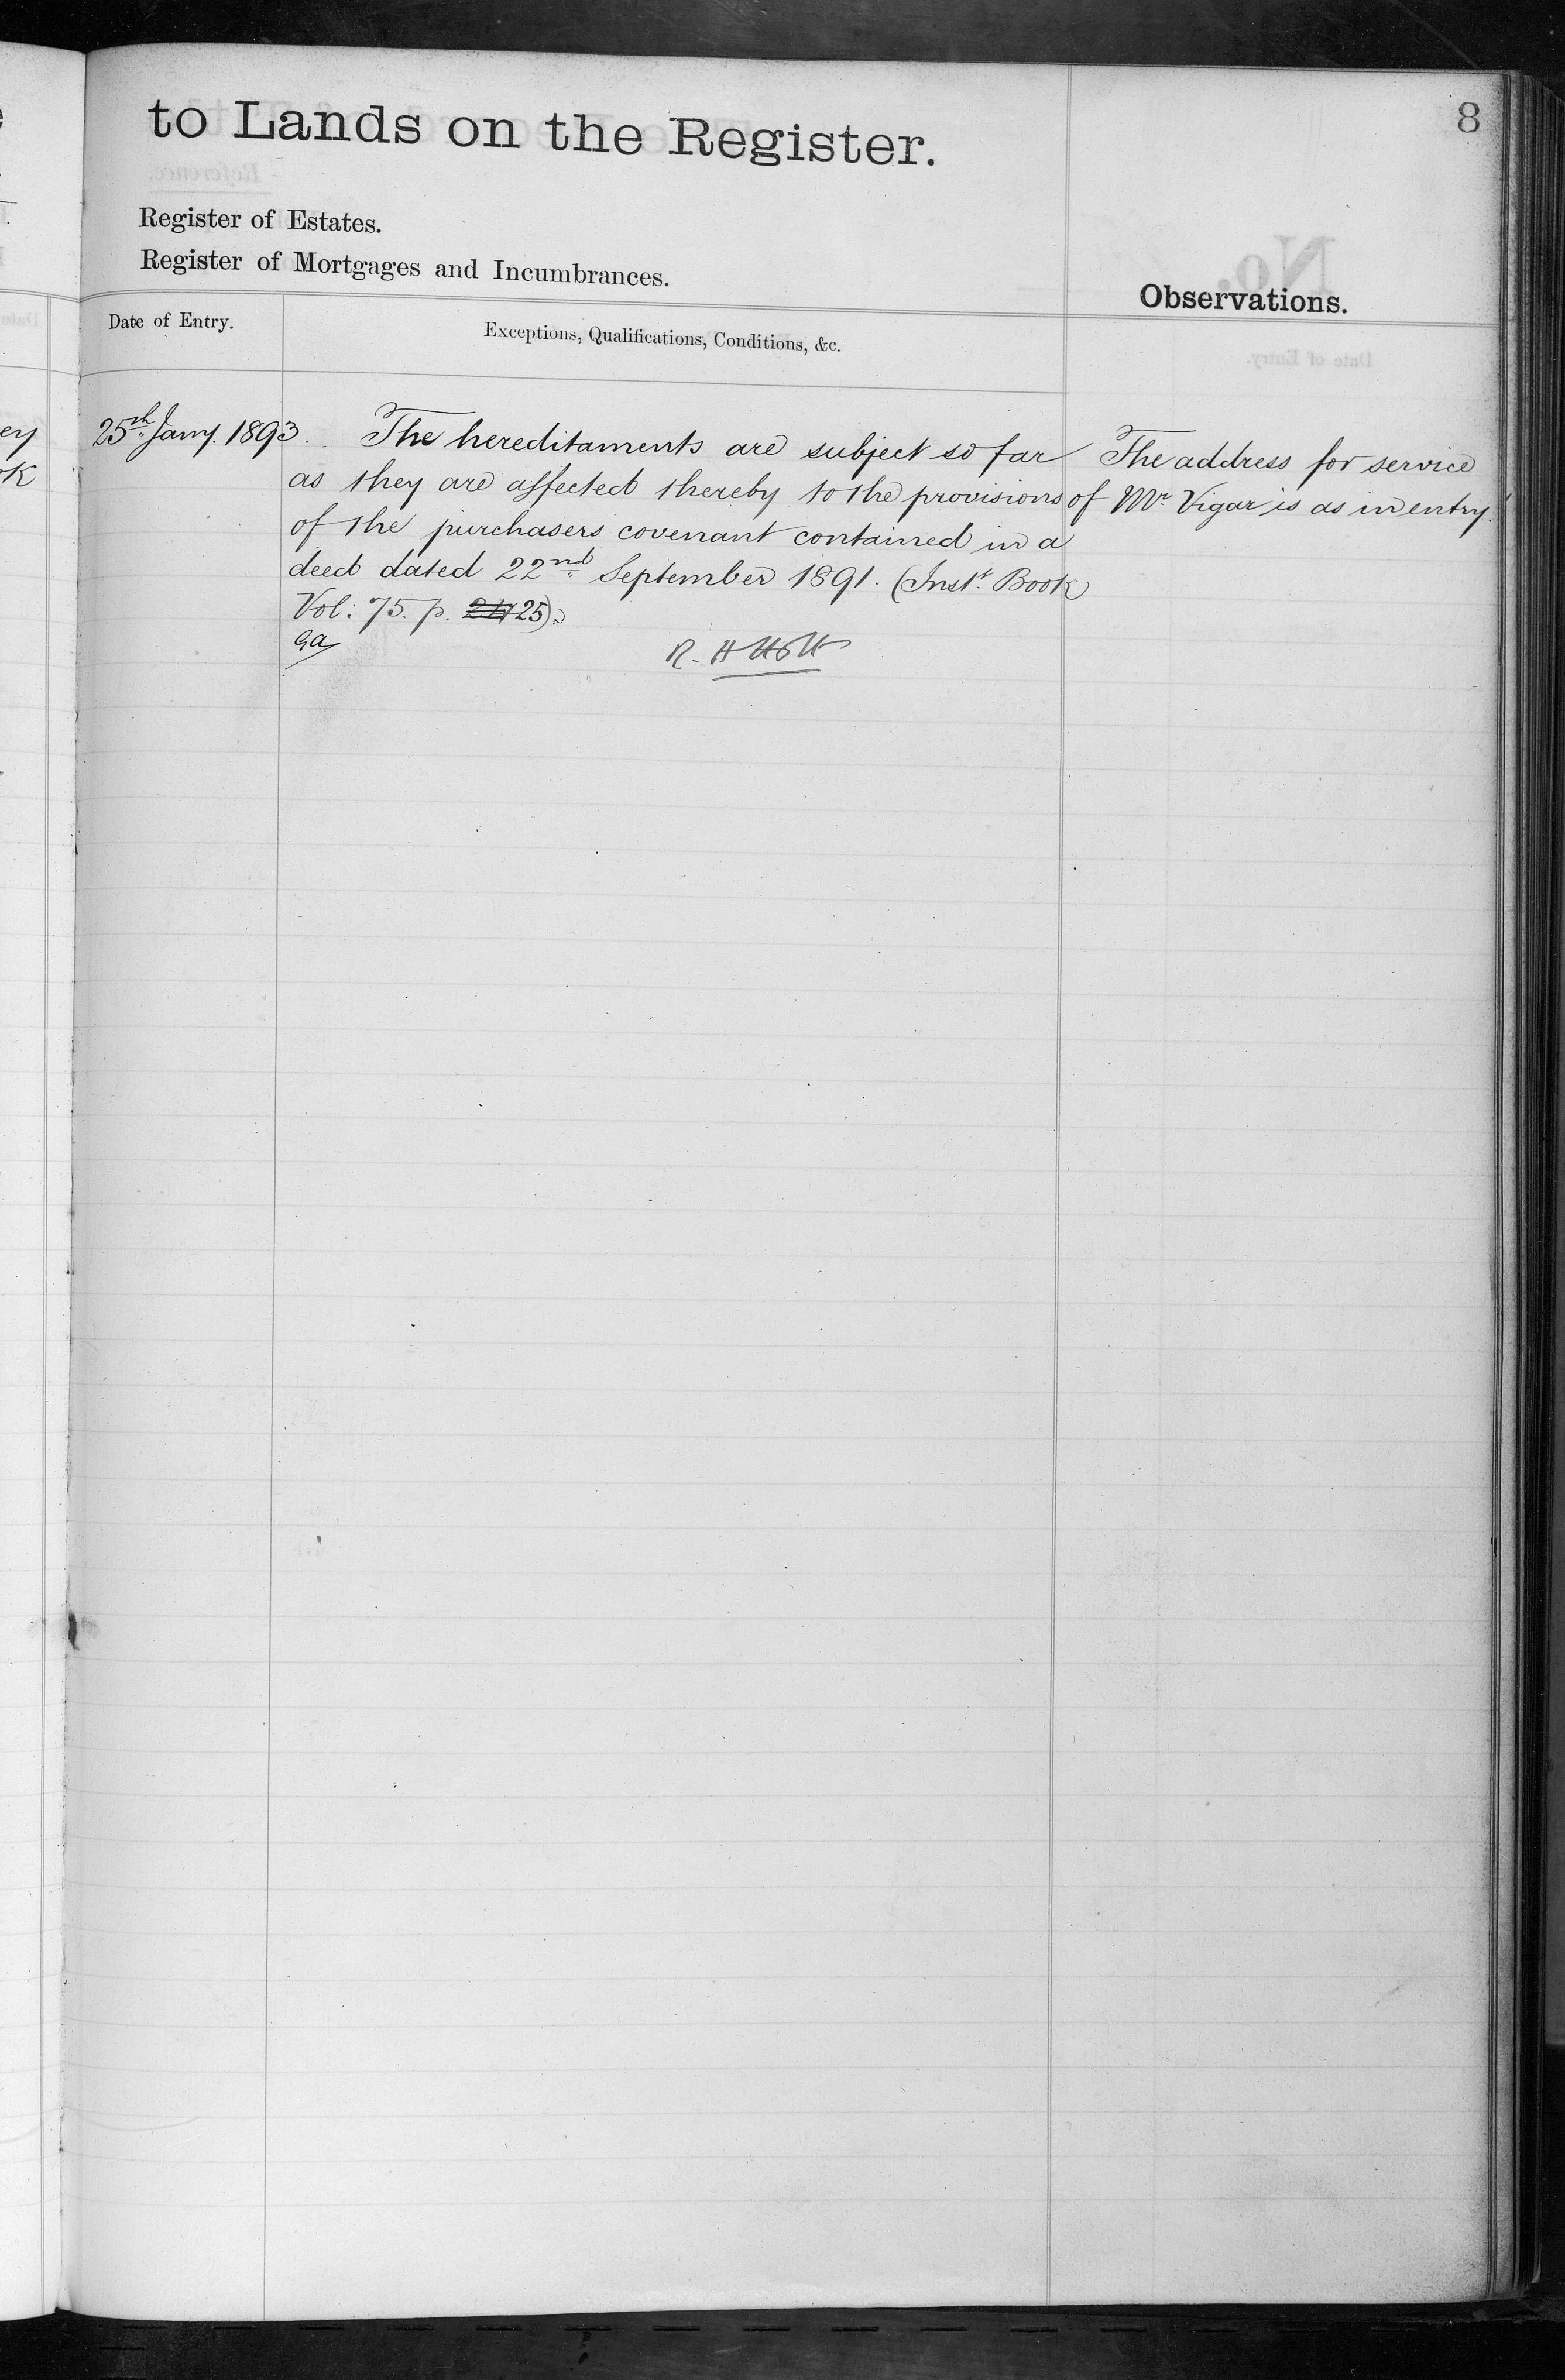 8
to Lands on the Register.
Register of Estates.
Register of Mortgages and Incumbrances.
Observations.
Date of Entry.
Exceptions, Qualifications, Conditions, &c.
25th Jany. 1893.
The hereditaments are subject so far
as they are affected thereby to the provisions
of the purchasers covenant contained in a
deed dated 22nd September 1891. (Inst. Book
Vol: 75. p. 25).
The address for service
of Mr. Vigar is as in entry.